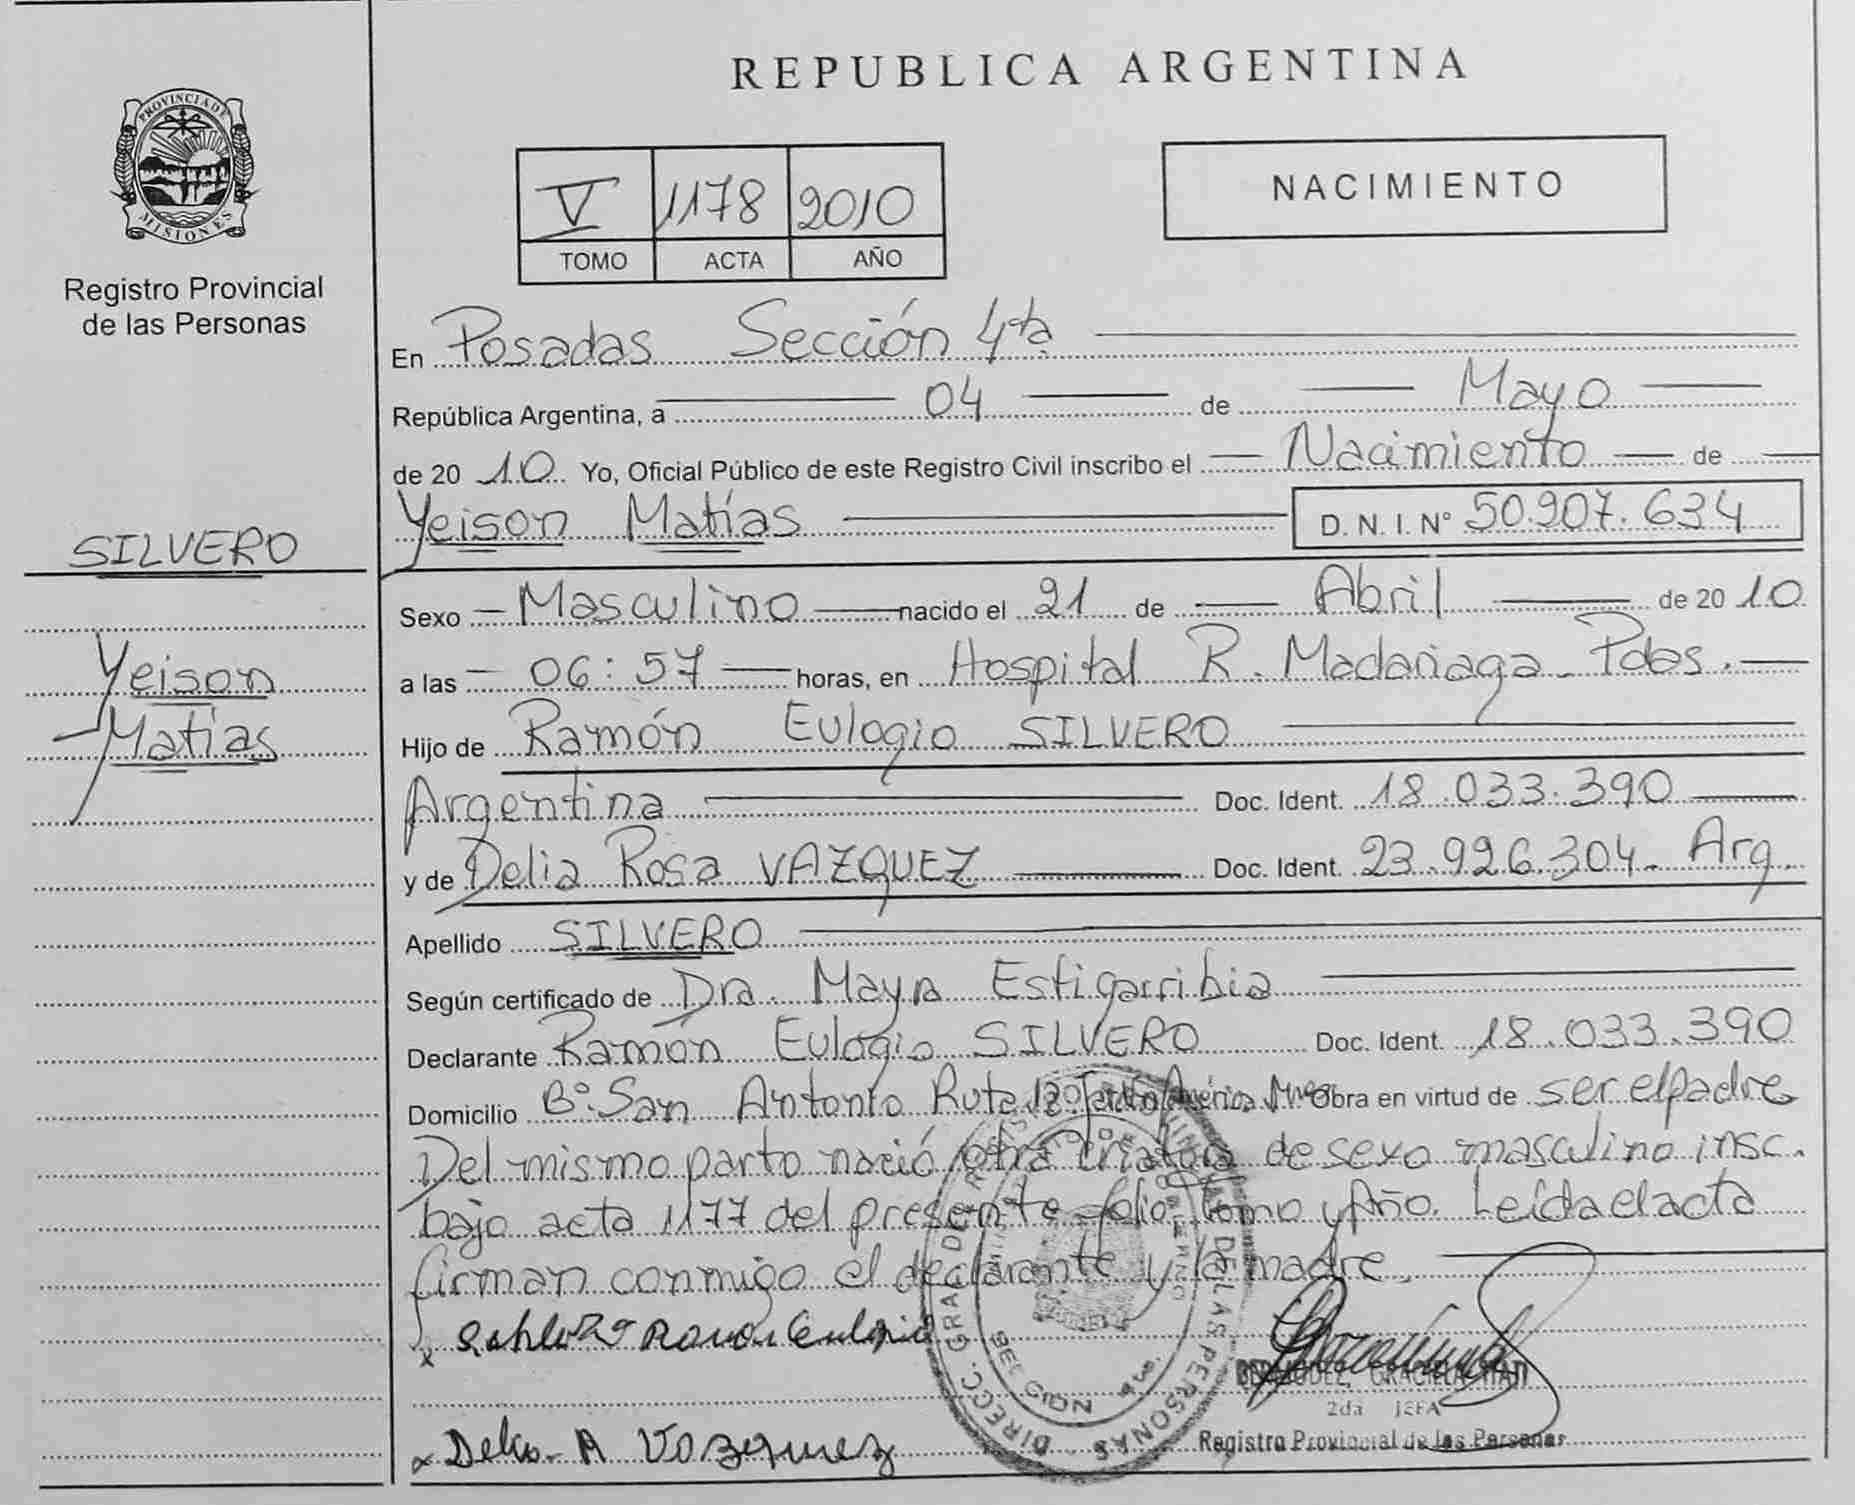 REPUBLICA ARGENTINA
PROVINCIA DE
MISIONES
Registro Provincial
de las Personas
V 1178 2010
TOMO ACTA AÑO
NACIMIENTO
SILVERO
Yeison
Matías
En Posadas Sección 4ta
República Argentina, a 04 de Mayo
de 20 10 Yo, Oficial Público de este Registro Civil inscribo el Nacimiento de
Yeison Matías D. N. I. Nº 50.907.634
Sexo Masculino nacido el 21 de Abril de 20 10
a las 06:57 horas, en Hospital R. Madariaga - Pdas.
Hijo de Ramón Eulogio SILVERO
Argentina Doc. Ident. 18.033.390
y de Delia Rosa VAZQUEZ Doc. Ident. 23.926.304. Arg.
Apellido SILVERO
Según certificado de Dra. Mayra Estigarribia
Declarante Ramón Eulogio SILVERO Doc. Ident. 18.033.390
Domicilio Bº San Antonio Ruta Obra en virtud de ser el padre
Del mismo parto nació otra criatura de sexo masculino insc.
bajo acta 1177 del presente folio, tomo y Año. Leída el acta
firman conmigo el declarante y la madre.
GRACIELA
2da JEFA
Registro Provincial de las Personas
DIRECC. GRAL DE LAS PERSONAS